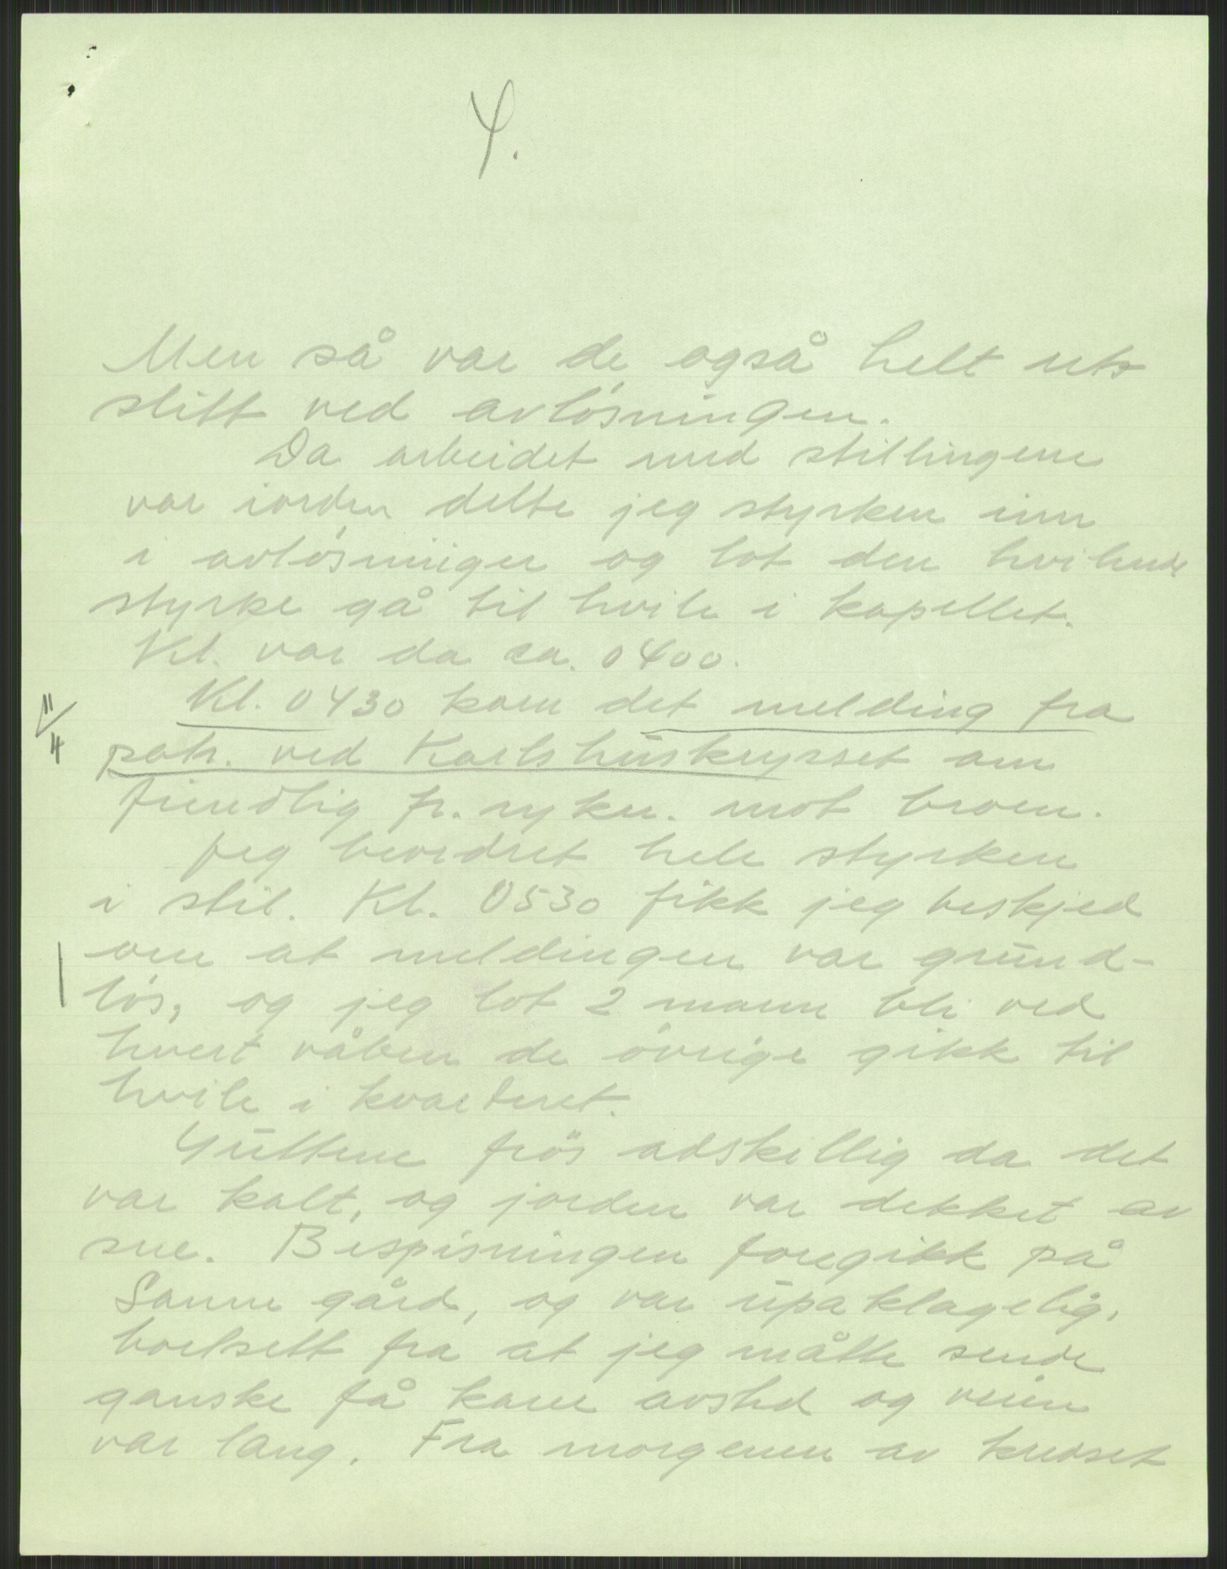 4.
Men så var de også helt ut-
slitt ved avlösningen.
Da arbeidet med stillingene
var iorden delte jeg styrken inn
i avlösninger og lot den hvilende
styrke gå til hvile i kapellet.
Kl. var da ca. 0400.
11/4 Kl. 0430 kom det melding fra
patr. ved Karlshuskrysset om
fiendtlig fr. rykn. mot broen.
Jeg beordret hele styrken
i still. Kl. 0530 fikk jeg beskjed
om at meldingen var grund-
lös, og jeg lot 2 mann bli ved
hvert våben de övrige gikk til
hvile i kvarteret.
Guttene frös adskillig da det
var kalt, og jorden var dekket av
sne. Bespisningen foregikk på
Sanne gård, og var upaklagelig,
bortsett fra at jeg måtte sende
ganske få karer avsted og veien
var lang. Fra morgenen av krydset